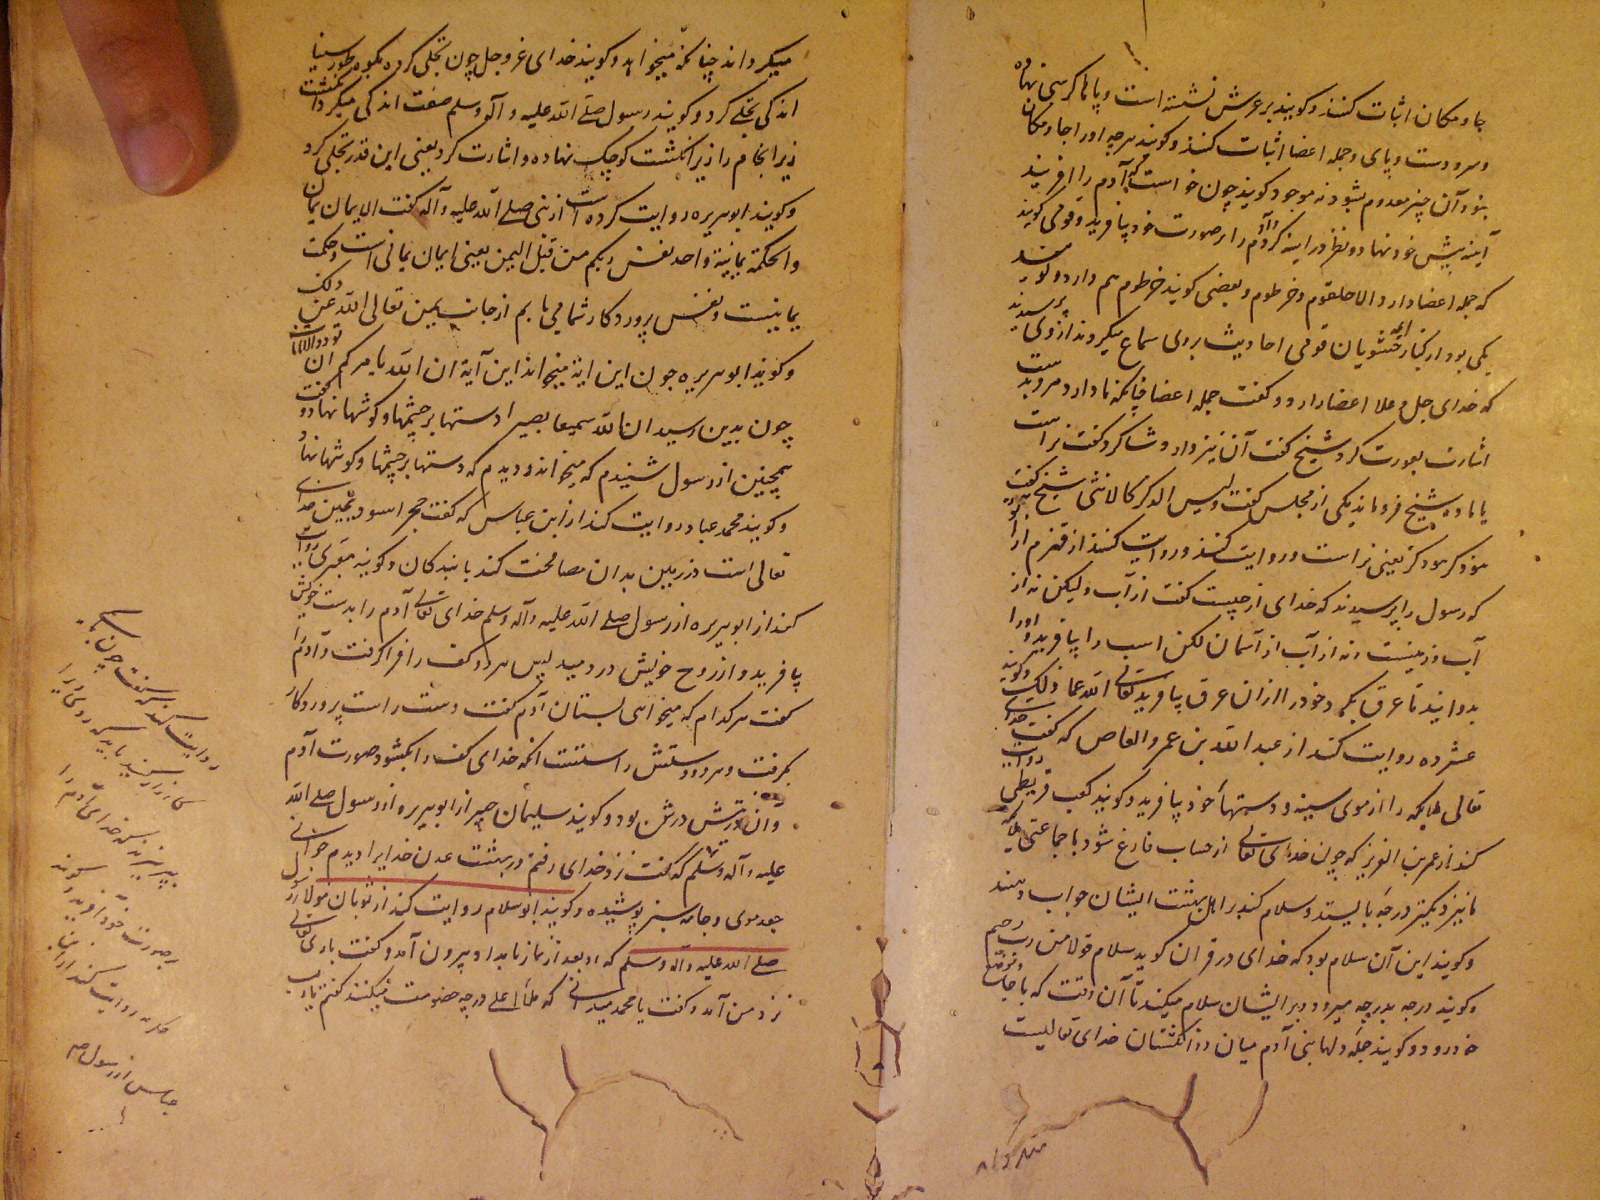 جا و مکان اثبات کنند و گویند بر عرش نشسته است و پایها کرسی نهاده
و سر و دست و پای و جمله اعضا اثبات کنند و گویند هرچه او را جا و مکان
بنود آن چیز معدوم بشود نه موجود گویند چون خواست که آدم را آفریند
آینه پیش خود نهاد و نظر در اینه کرد و آدم را بر صورت خود بیافرید و قومی گویند
که جمله اعضا دارد الا حلقوم و خرطوم و بعضی گویند خرطوم هم دارد و گویند
یکی بود از کبار حشویان قومی احادیث بروی سماع میکردند از وی پرسیدند
که خدای جل و علا اعضا دارد و گفت جمله اعضا چنانکه ما دارد مرو بدست
اشارت بعورت کرد شیخ گفت آن نیز دارد شاگرد گفت نر است
یا ماده شیخ فرو ماند یکی از مجلس گفت و لیس الذکر کالانثی شیخ گفت
هو ذکر هو ذکر یعنی نر است و روایت کنند
که رسول را پرسیدند که خدای از چیست گفت از آب ولیکن نه از
آب زمینست و نه از آب از آسمان لکن اسب را بیافرید و او را
بدوانید تا عرق بکرد و خود را از ان عرق بیافرید تعالی الله عما ذلک و گویند
روایت کنند از عبد الله بن عمرو العاص که گفت خدای
تعالی ملایکه را از موی سینه و دستهاء خود بیافرید و گویند کعب قریظی روایت
کند از عمر بن العزیز که چون خدای تعالی از حساب فارغ شود با جماعتی ملایکه
درجه بایستد و سلام کند بر اهل بهشت ایشان جواب دهند
و گویند این آن سلام بود که خدای در قرآن گوید سلام قولا من رب رحیم
و گویند درجه بدرجه میرود و بر ایشان سلام میکند تا آن وقت که با جای
خود رود و گویند جمله دلها بنی آدم میان دو انگشتان خدای تعالیست
میگرداند چنانکه میخواهد و گویند خدای عز و جل چون تجلی کرد بکوه طور سینا
اندکی تجلی کرد و گویند رسول صلی الله علیه و آله و سلم صفت اندکی میکرد انگشت
زیر ابهام را زیر انگشت کوچک نهاده و اشارت کرد یعنی این قدر تجلی کرد
و گویند ابو هریره روایت کرده است از نبی صلی الله علیه و آله گفت الایمان یمان
و الحکمة یمانیة و اجد نفس ربکم من قبل الیمن یعنی ایمان یمانی است و حکمت
یمانیست و نفس پروردگار شما می یابم از جانب یمن تعالی الله عن ذلک
و گویند ابو هریره چون این آیة میخواند این آیة ان الله یامرکم ان تودوا الامانات
چون بدین رسید ان الله سمیعا بصیرا دستها بر چشمها و گوشها نهاد و گفت
همچنین از رسول شنیدم که میخواند و دیدم که دستها بر چشمها و گوشها نهاد
و گویند محمد عباد روایت کند از ابن عباس که گفت حجر اسود یمین خدای
تعالی است در زمین بدان مصافحت کند با بندکان و گویند مقبری روایت
کند از ابو هریره از رسول صلی الله علیه و آله و سلم خدای تعالی آدم را بدست خویش
بیافرید و از روح خویش در دمید پس هر دو کف را فرا گرفت و آدم را
گفت هر کدام که میخواهی بستان آدم گفت دست راست پروردگار
بگرفت و هر دو دستش راستست آنگه خدای کف را بگشود صورت آدم
و آن ذریتش درش بود و گویند سلیمان از ابو هریره از رسول صلی الله
علیه و آله و سلم که گفت نزد خدای رفتم در بهشت عدن خدایرا دیدم جوانی
جعد موی و جامه سبز پوشیده و گویند ابو سلام روایت کند از ثوبان مولا رسول
صلی الله علیه و آله و سلم که او بعد از نماز بامداد بیرون آمد و گفت باری تعالی
نزد من آمد و گفت یا محمد میدانی که ملأ اعلی درچه خصومت میکنند گفتم یا رب
روایت کنند که گفت چون یکی
کارزار کنید باید که روی را
بپرهیزید که خدای آدم را
بر صورت خود آفرید و گویند
عکرمه روایت کند از ابن
عباس از رسول ص